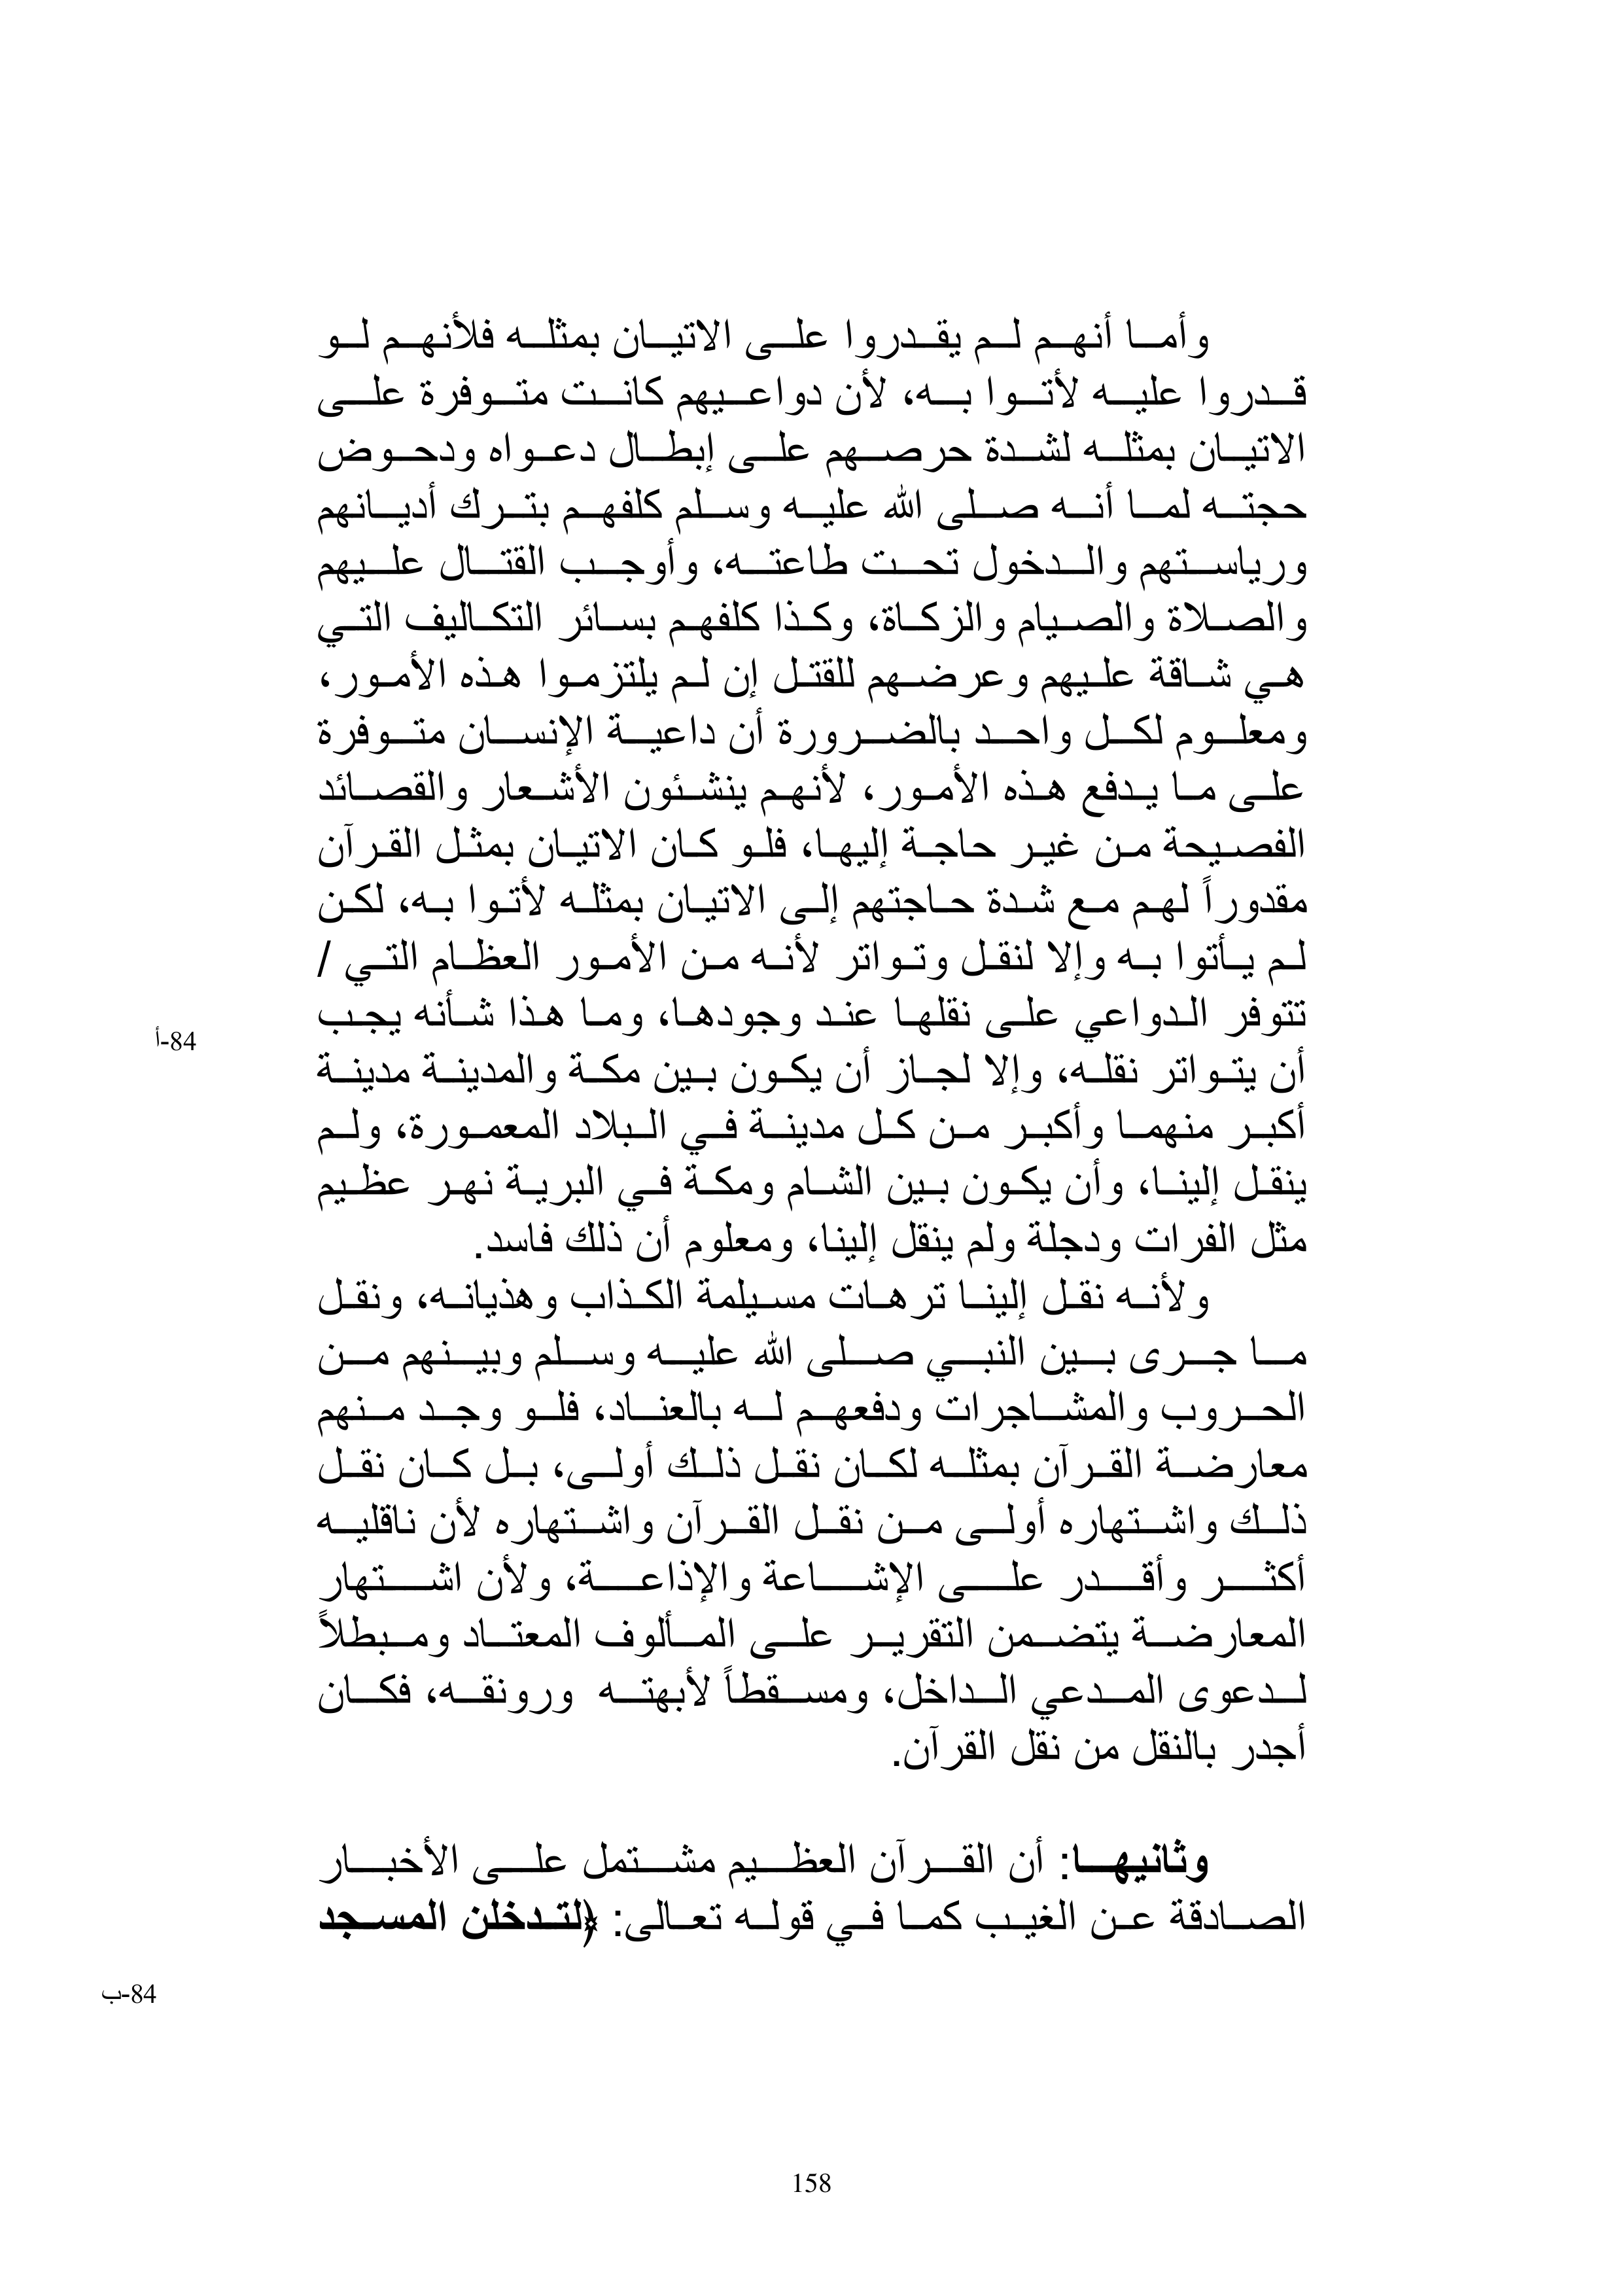 وأما أنهم لم يقدروا على الاتيان بمثله فلأنهم لو
قدروا عليه لأتوا به، لأن دواعيهم كانت متوفرة على
الاتيان بمثله لشدة حرصهم على إبطال دعواه ودحوض
حجته لما أنه صلى الله عليه وسلم كلفهم بترك أديانهم
ورياستهم والدخول تحت طاعته، وأوجب القتال عليهم
والصلاة والصيام والزكاة، وكذا كلفهم بسائر التكاليف التي
هي شاقة عليهم وعرضهم للقتل إن لم يلتزموا هذه الأمور،
ومعلوم لكل واحد بالضرورة أن داعية الإنسان متوفرة
على ما يدفع هذه الأمور، لأنهم ينشئون الأشعار والقصائد
الفصيحة من غير حاجة إليها، فلو كان الاتيان بمثل القرآن
مقدوراً لهم مع شدة حاجتهم إلى الاتيان بمثله لأتوا به، لكن
لم يأتوا به وإلا لنقل وتواتر لأنه من الأمور العظام التي /
تتوفر الدواعي على نقلها عند وجودها، وما هذا شأنه يجب
84-أ
أن يتواتر نقله، وإلا لجاز أن يكون بين مكة والمدينة مدينة
أكبر منهما وأكبر من كل مدينة في البلاد المعمورة، ولم
ينقل إلينا، وأن يكون بين الشام ومكة في البرية نهر عظيم
مثل الفرات ودجلة ولم ينقل إلينا، ومعلوم أن ذلك فاسد.
ولأنه نقل إلينا ترهات مسيلمة الكذاب وهذيانه، ونقل
ما جرى بين النبي صلى الله عليه وسلم وبينهم من
الحروب والمشاجرات ودفعهم له بالعناد، فلو وجد منهم
معارضة القرآن بمثله لكان نقل ذلك أولى، بل كان نقل
ذلك واشتهاره أولى من نقل القرآن واشتهاره لأن ناقليه
أكثر وأقدر على الإشاعة والإذاعة، ولأن اشتهار
المعارضة يتضمن التقرير على المألوف المعتاد ومبطلاً
لدعوى المدعي الداخل، ومسقطاً لأبهته ورونقه، فكان
أجدر بالنقل من نقل القرآن.
وثانيها: أن القرآن العظيم مشتمل على الأخبار
الصادقة عن الغيب كما في قوله تعالى: ﴿لتدخلن المسجد
84-ب
158